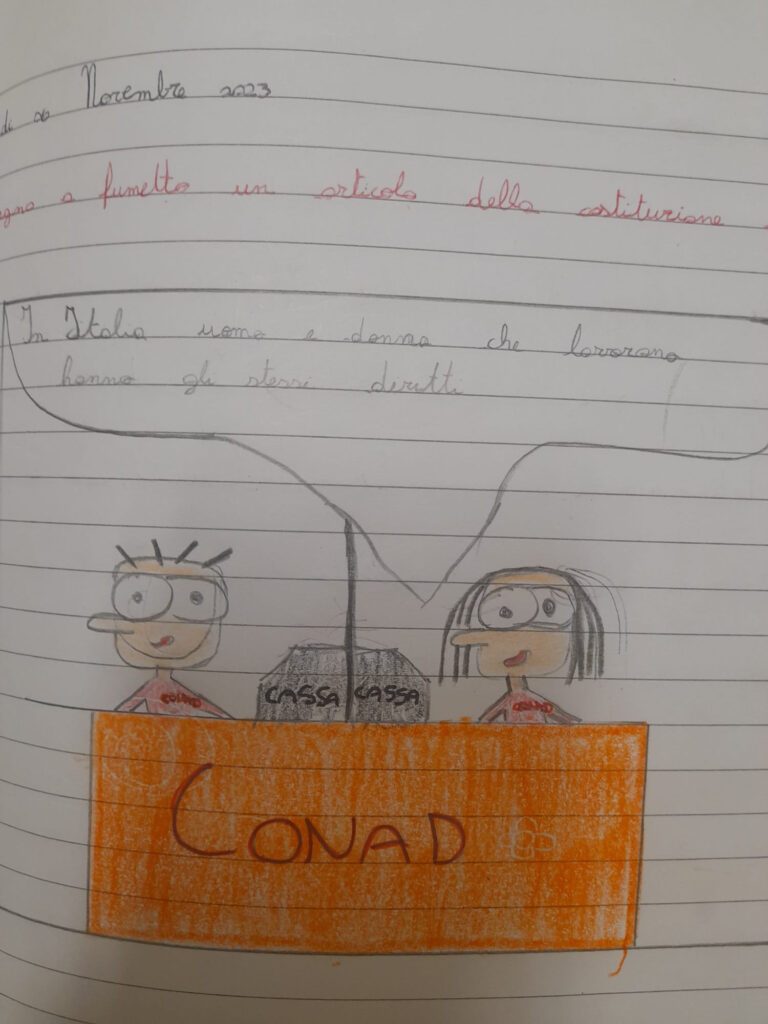 Novembre 2023
a fumetto un articolo della costituzione
In Italia uomo e donna che lavorano
hanno gli stessi diritti
CASSA CASSA
CONAD CONAD
CONAD